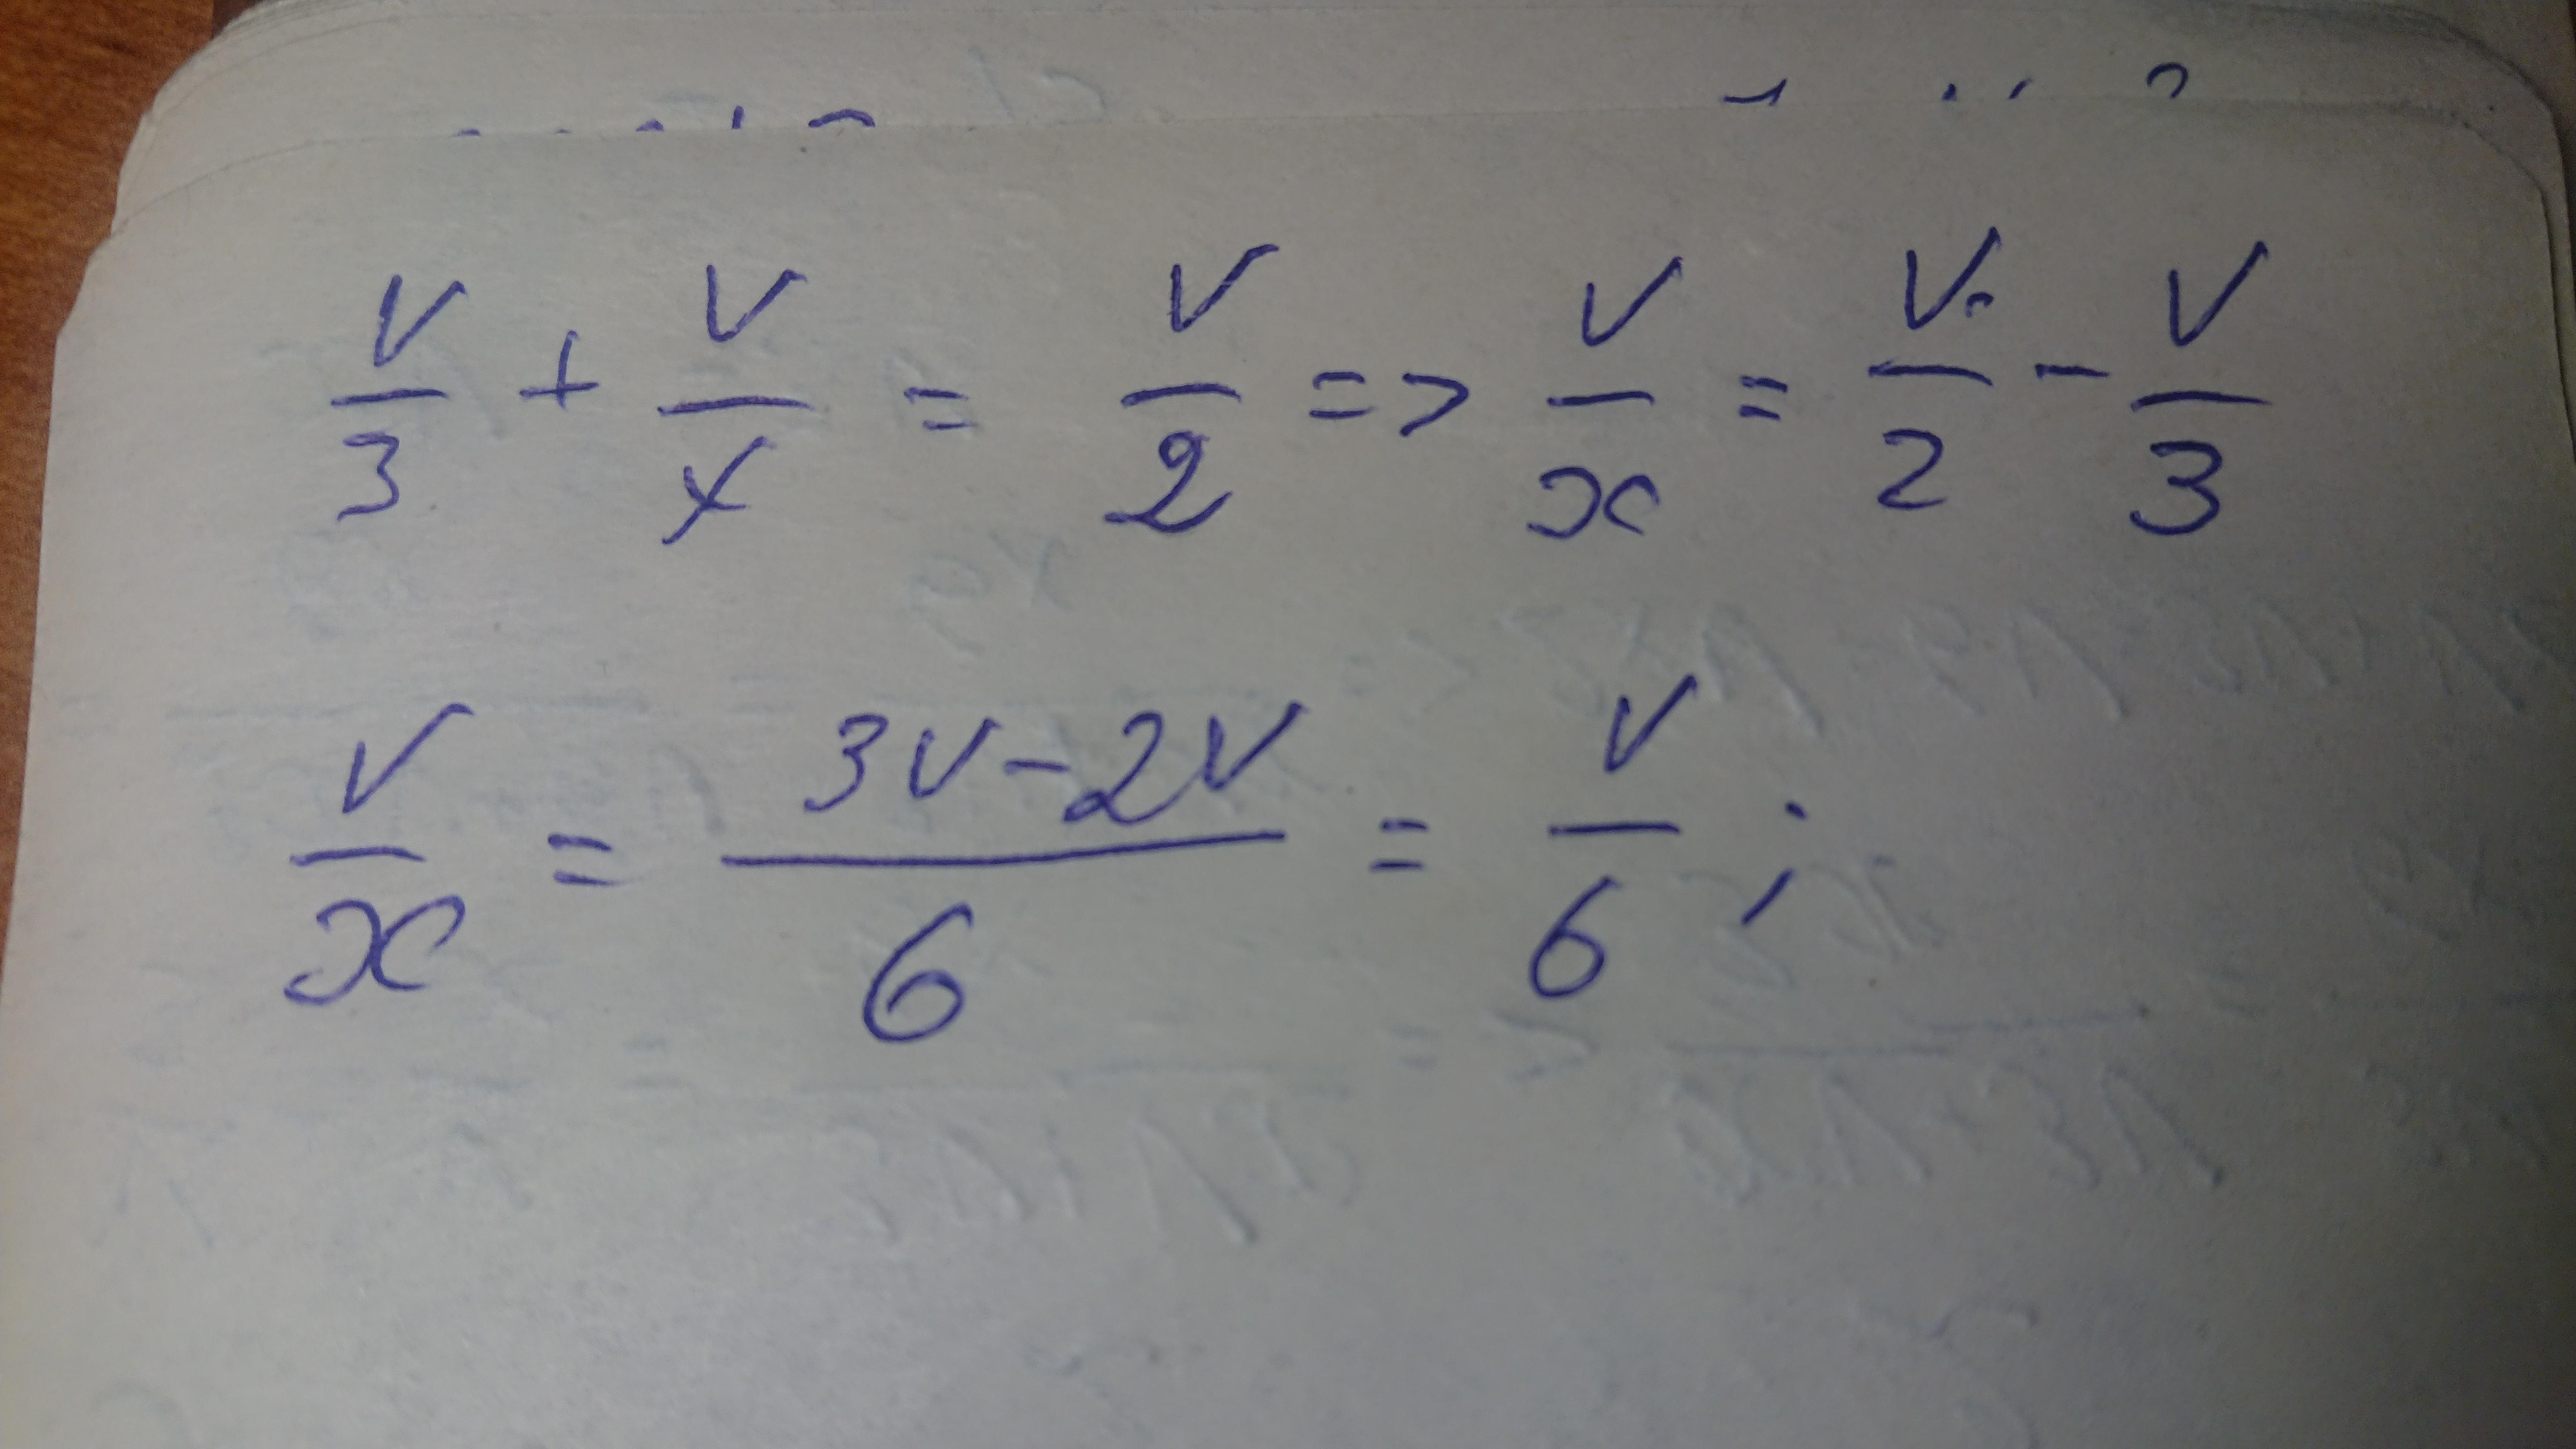 V/3 + V/x = V/2 => V/x = V/2 - V/3
V/x = (3V-2V)/6 = V/6 ;